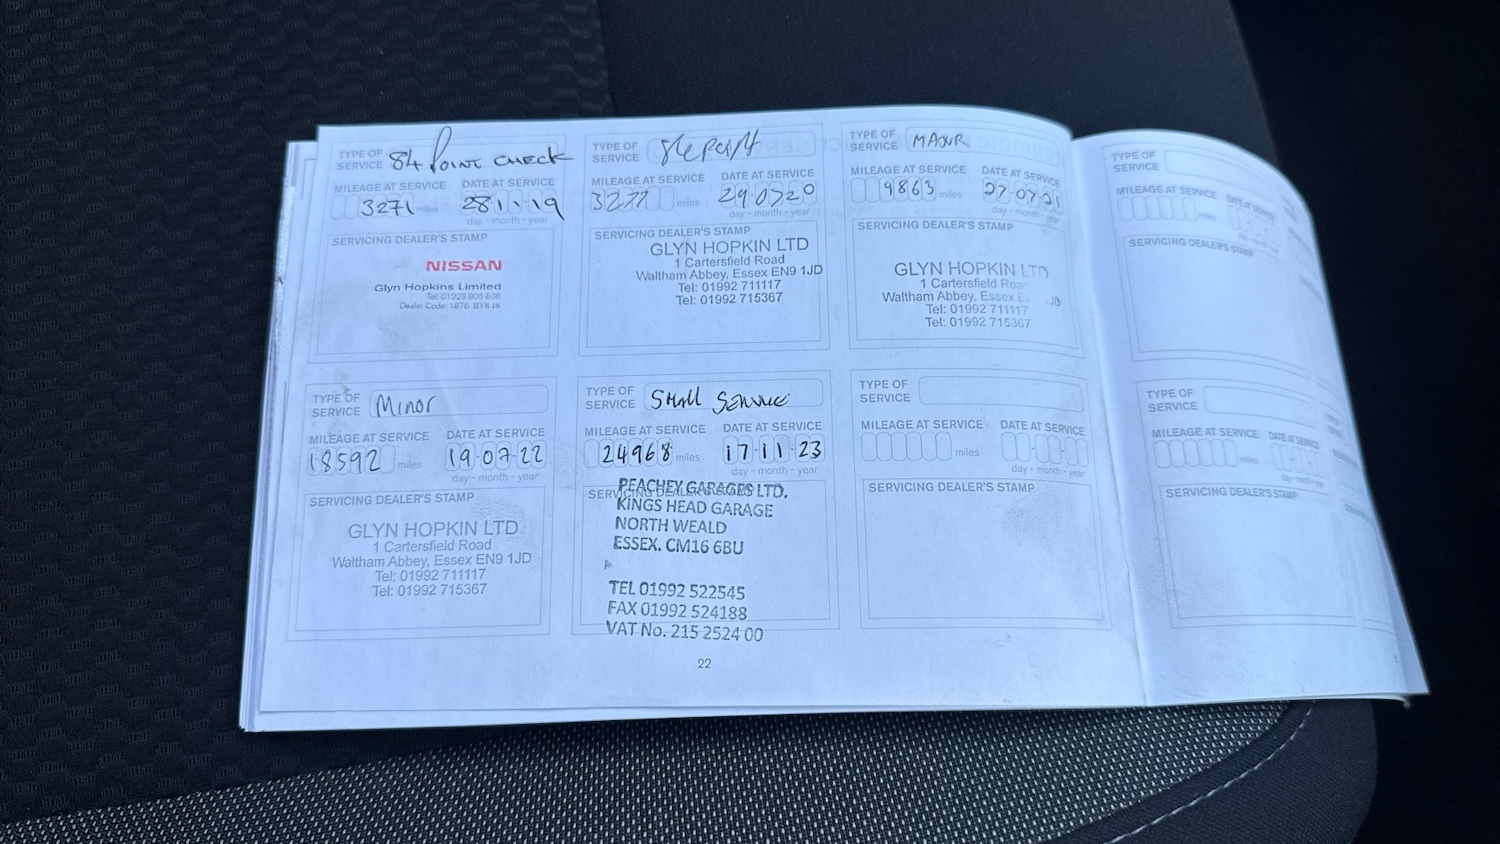 TYPE OF SERVICE 84 POINT CHECK
MILEAGE AT SERVICE DATE AT SERVICE
3271 miles 28 11 19
day - month - year
SERVICING DEALER'S STAMP
NISSAN
Glyn Hopkins Limited
Tel: 01223
Dealer Code: 1876
TYPE OF SERVICE
MILEAGE AT SERVICE DATE AT SERVICE
miles 29 07 20
day - month - year
SERVICING DEALER'S STAMP
GLYN HOPKIN LTD
1 Cartersfield Road
Waltham Abbey, Essex EN9 1JD
Tel: 01992 711117
Tel: 01992 715367
TYPE OF SERVICE MAJOR
MILEAGE AT SERVICE DATE AT SERVICE
9863 miles 27 07 21
day - month - year
SERVICING DEALER'S STAMP
GLYN HOPKIN LTD
1 Cartersfield Road
Waltham Abbey, Essex
Tel: 01992 711117
Tel: 01992 715367
TYPE OF SERVICE
MILEAGE AT SERVICE DATE AT SERVICE
miles
SERVICING DEALER'S STAMP
TYPE OF SERVICE Minor
MILEAGE AT SERVICE DATE AT SERVICE
18592 miles 19-07-22
day - month - year
SERVICING DEALER'S STAMP
GLYN HOPKIN LTD
1 Cartersfield Road
Waltham Abbey, Essex EN9 1JD
Tel: 01992 711117
Tel: 01992 715367
TYPE OF SERVICE Small Service
MILEAGE AT SERVICE DATE AT SERVICE
24968 miles 17-11-23
day - month - year
SERVICING DEALER'S STAMP
PEACHEY GARAGES LTD.
KINGS HEAD GARAGE
NORTH WEALD
ESSEX. CM16 6BU
TEL 01992 522545
FAX 01992 524188
VAT No. 215 2524 00
TYPE OF SERVICE
MILEAGE AT SERVICE DATE AT SERVICE
miles
day - month - year
SERVICING DEALER'S STAMP
TYPE OF SERVICE
MILEAGE AT SERVICE DATE AT SERVICE
miles
SERVICING DEALER'S STAMP
22